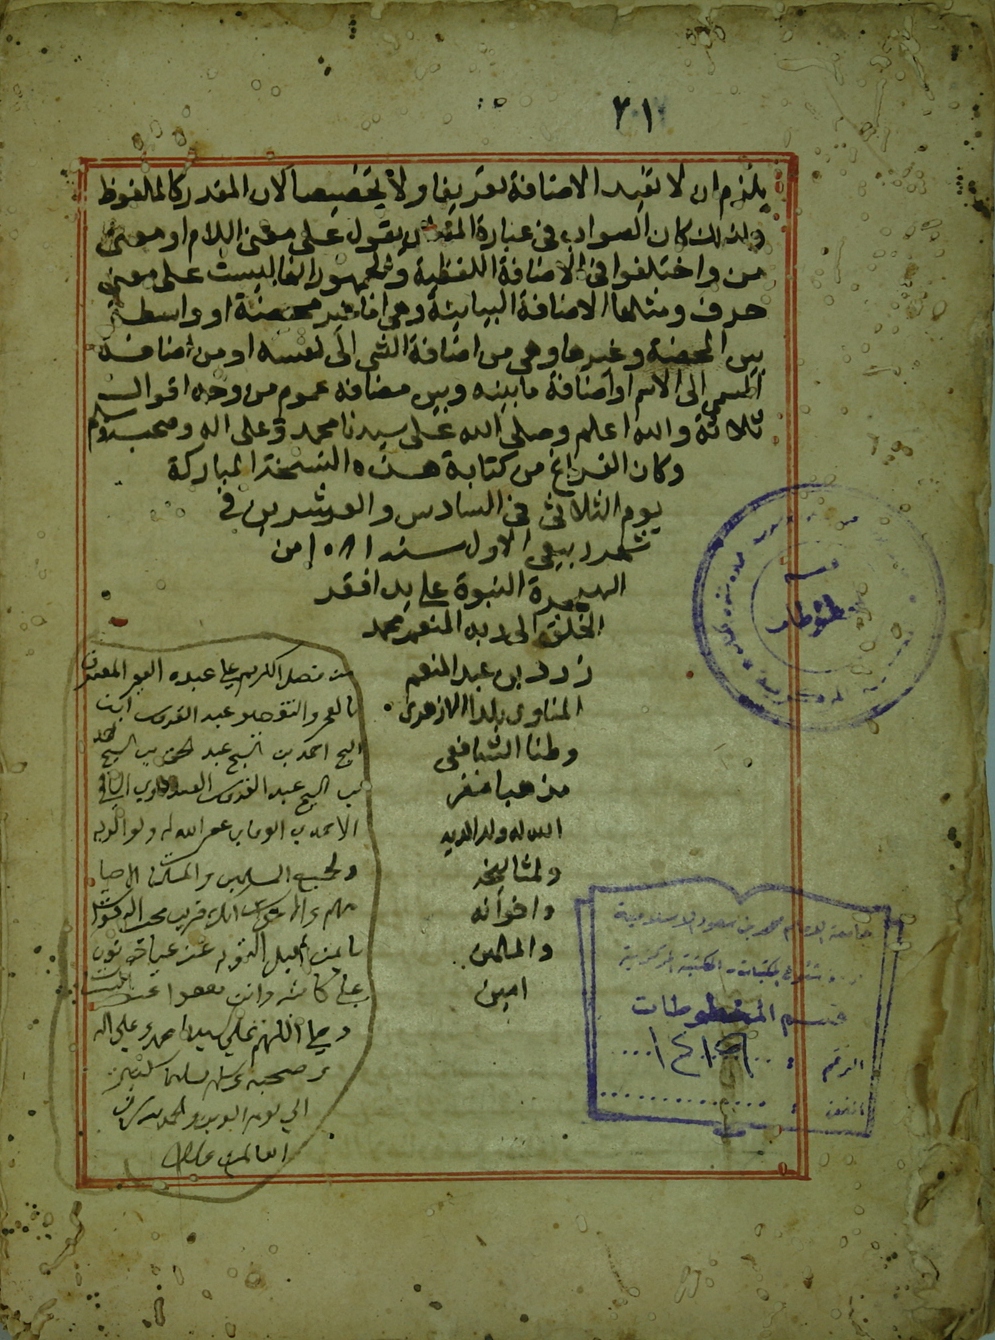 ٢١
يلزم ان لا تفيد الاضافة تعريفا ولا تخصيصا لان المقدر كالملفوظ
ولذلك كان الصواب في عبارة ان يقول على معنى اللام او معنى
من واختلفوا في الاضافة اللفظية والجمهور انها ليست على معنى
حرف ومثلها الاضافة البيانية وهي اما غير محضة او واسطة
بين المحضة وغيرها وهي من اضافة الشي الى نفسه او من اضافة
المسمى الى الاسم او اضافة ما بينه وبين مضافه عموم من وجه اقوال
ثلاثة والله اعلم وصلى الله على سيدنا محمد وعلى اله وصحبه وسلم
وكان الفراغ من كتابة هذه النسخة المباركة
يوم الثلاثي في السادس والعشرين في
شهر ربيعي الاول سنة ١٠٨١ من
الهجرة النبوة على يد افقر
الخلق الى ربه المنعم محمد
بن عبد المنعم
المناوي بلدا الازهري
وطنا الشافعي
مذهبا غفر
الله له ولوالديه
ولمشايخه
واخوانه
والمسلمين
امين
من فضل الكريم على عبده المعترف
بالعجز والتقصير عبد القدوس ابن
الشيخ احمد بن الشيخ عبد الحق بن الشيخ محمد
بن الشيخ عبد القدوس
الاحمدي غفر الله له ولوالديه
ولجميع المسلمين والمسلمات الاحيا
منهم والاموات انك قريب مجيب الدعوات
يا من يقبل التوبه عن عباده
وصلي اللهم على سيدنا محمد وعلى اله
وصحبه وسلم تسليما كثيرا
الى يوم الدين والحمد لله رب
العالمين
قسم
مخطوطات
جامعة الامام محمد بن سعود الاسلامية
المكتبة المركزية
قسم المخطوطات
الرقم :